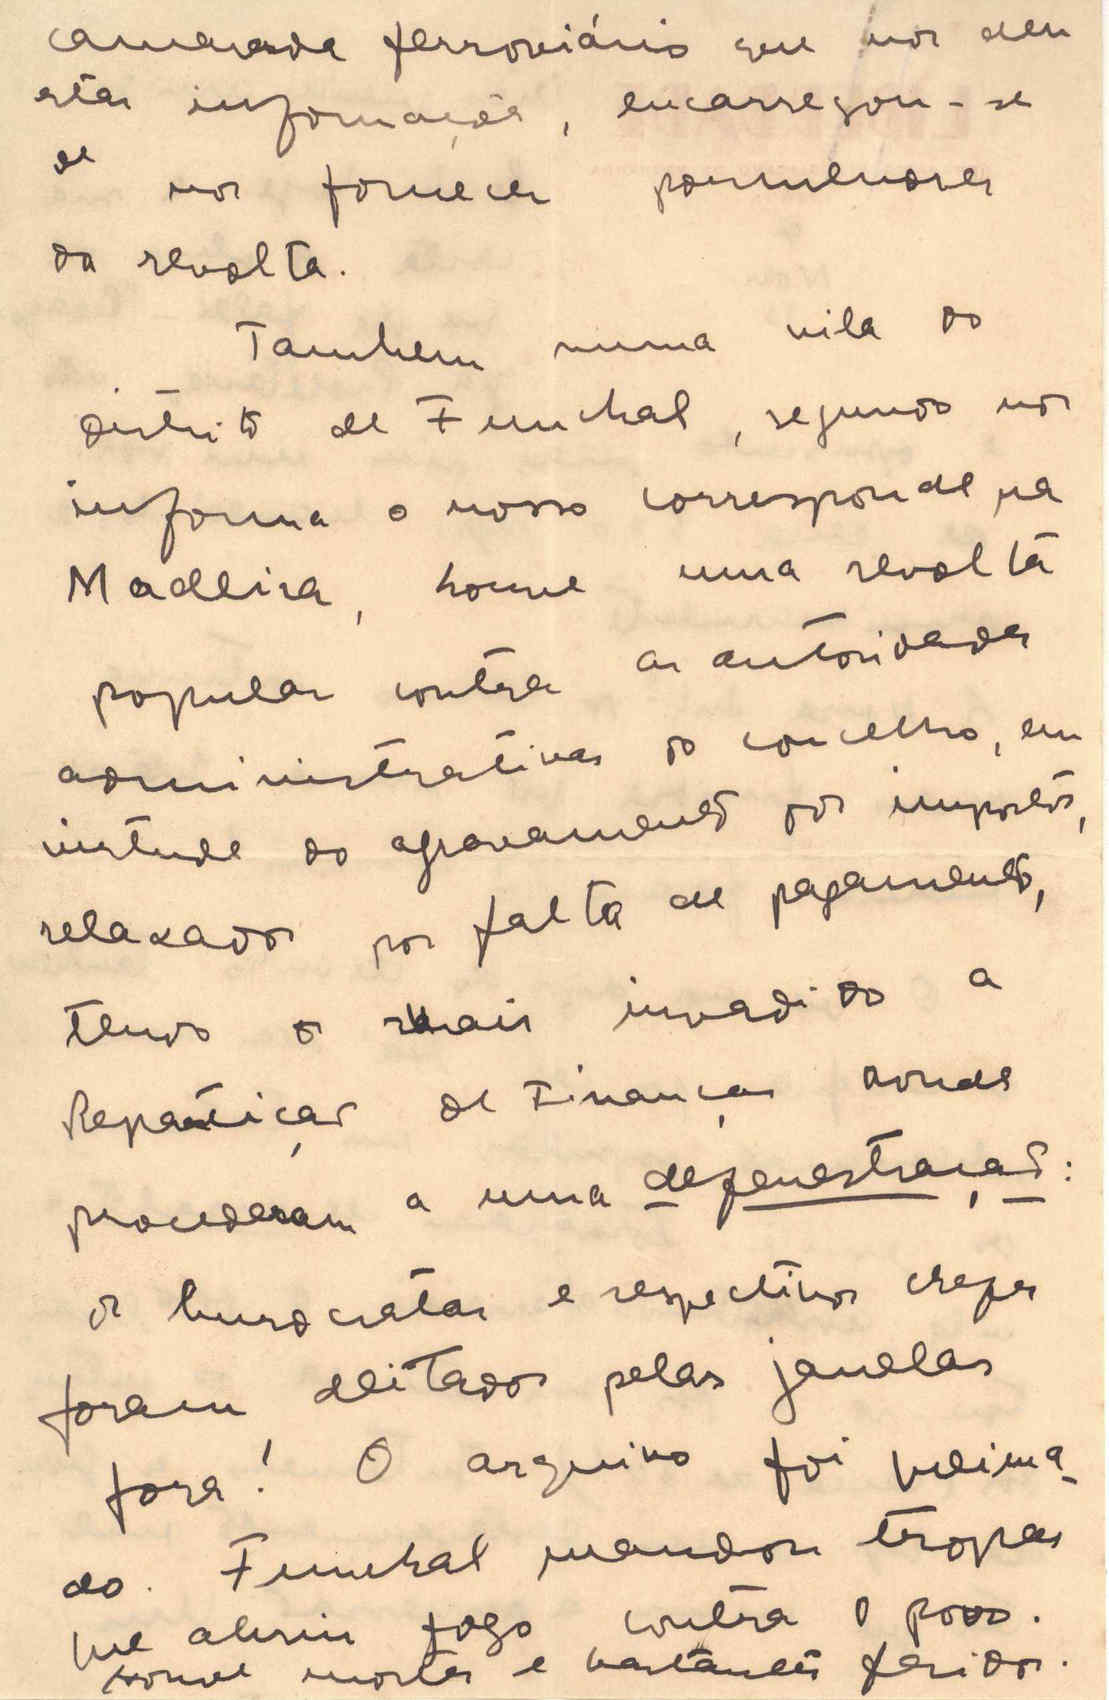 camarada ferroviário que nos deu
estas informações, encarregou-se
de nos fornecer pormenores
da revolta.
Tambem numa vila do
distrito de Funchal, segundo nos
informa o nosso corresponde na
Madeira, houve uma revolta
popular contra as autoridades
administrativas do concelho, em
virtude do agravamento dos impostos,
relaxados por falta de pagamento,
tendo os mais invadido a
Repartição de Finanças donde
procederam a uma defenestração:
os burocratas e respectivos chefes
foram deitados pelas janelas
fora! O arquivo foi queima-
do. Funchal mandou tropas
que abriu fogo contra o povo.
Houve mortes e bastantes feridos.